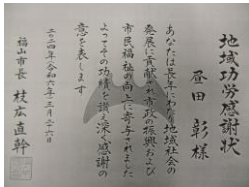 地域功労感謝状
昼田 彰 様
あなたは長年にわたり地域社会の
発展に貢献され市政の振興および
市民福祉の向上に寄与されました
よってその功績を讃え深く感謝の
意を表します
二〇二四年(令和六年)二月二十六日
福山市長 枝広直幹